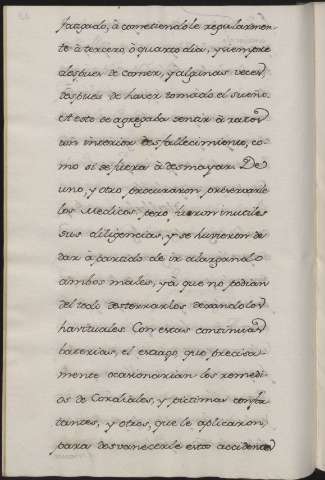 fatigado, acometiendole regularmen-
te à tercero, ò quarto dia, y siempre
despues de comer, y algunas veces,
despues de haver tomado el sueño.
A esto se agregaba sentir à ratos
un interior desfallecimiento, co-
mo si se fuera à desmayar. De
uno, y otro procuraron preservarle
los Medicos, pero fueron inutiles
sus diligencias, y se huvieron de
dar à partido de ir alargando
ambos males, yà que no podian
del todo desterrarlos dexandolos
havituales. Con estas continuas
baterias, el estrago, que precisa-
mente ocasionarian los remedi-
os de Cordiales, y pictimas confor-
tantes, y otros, que le aplicaron,
para desvanecerle estos accidentes